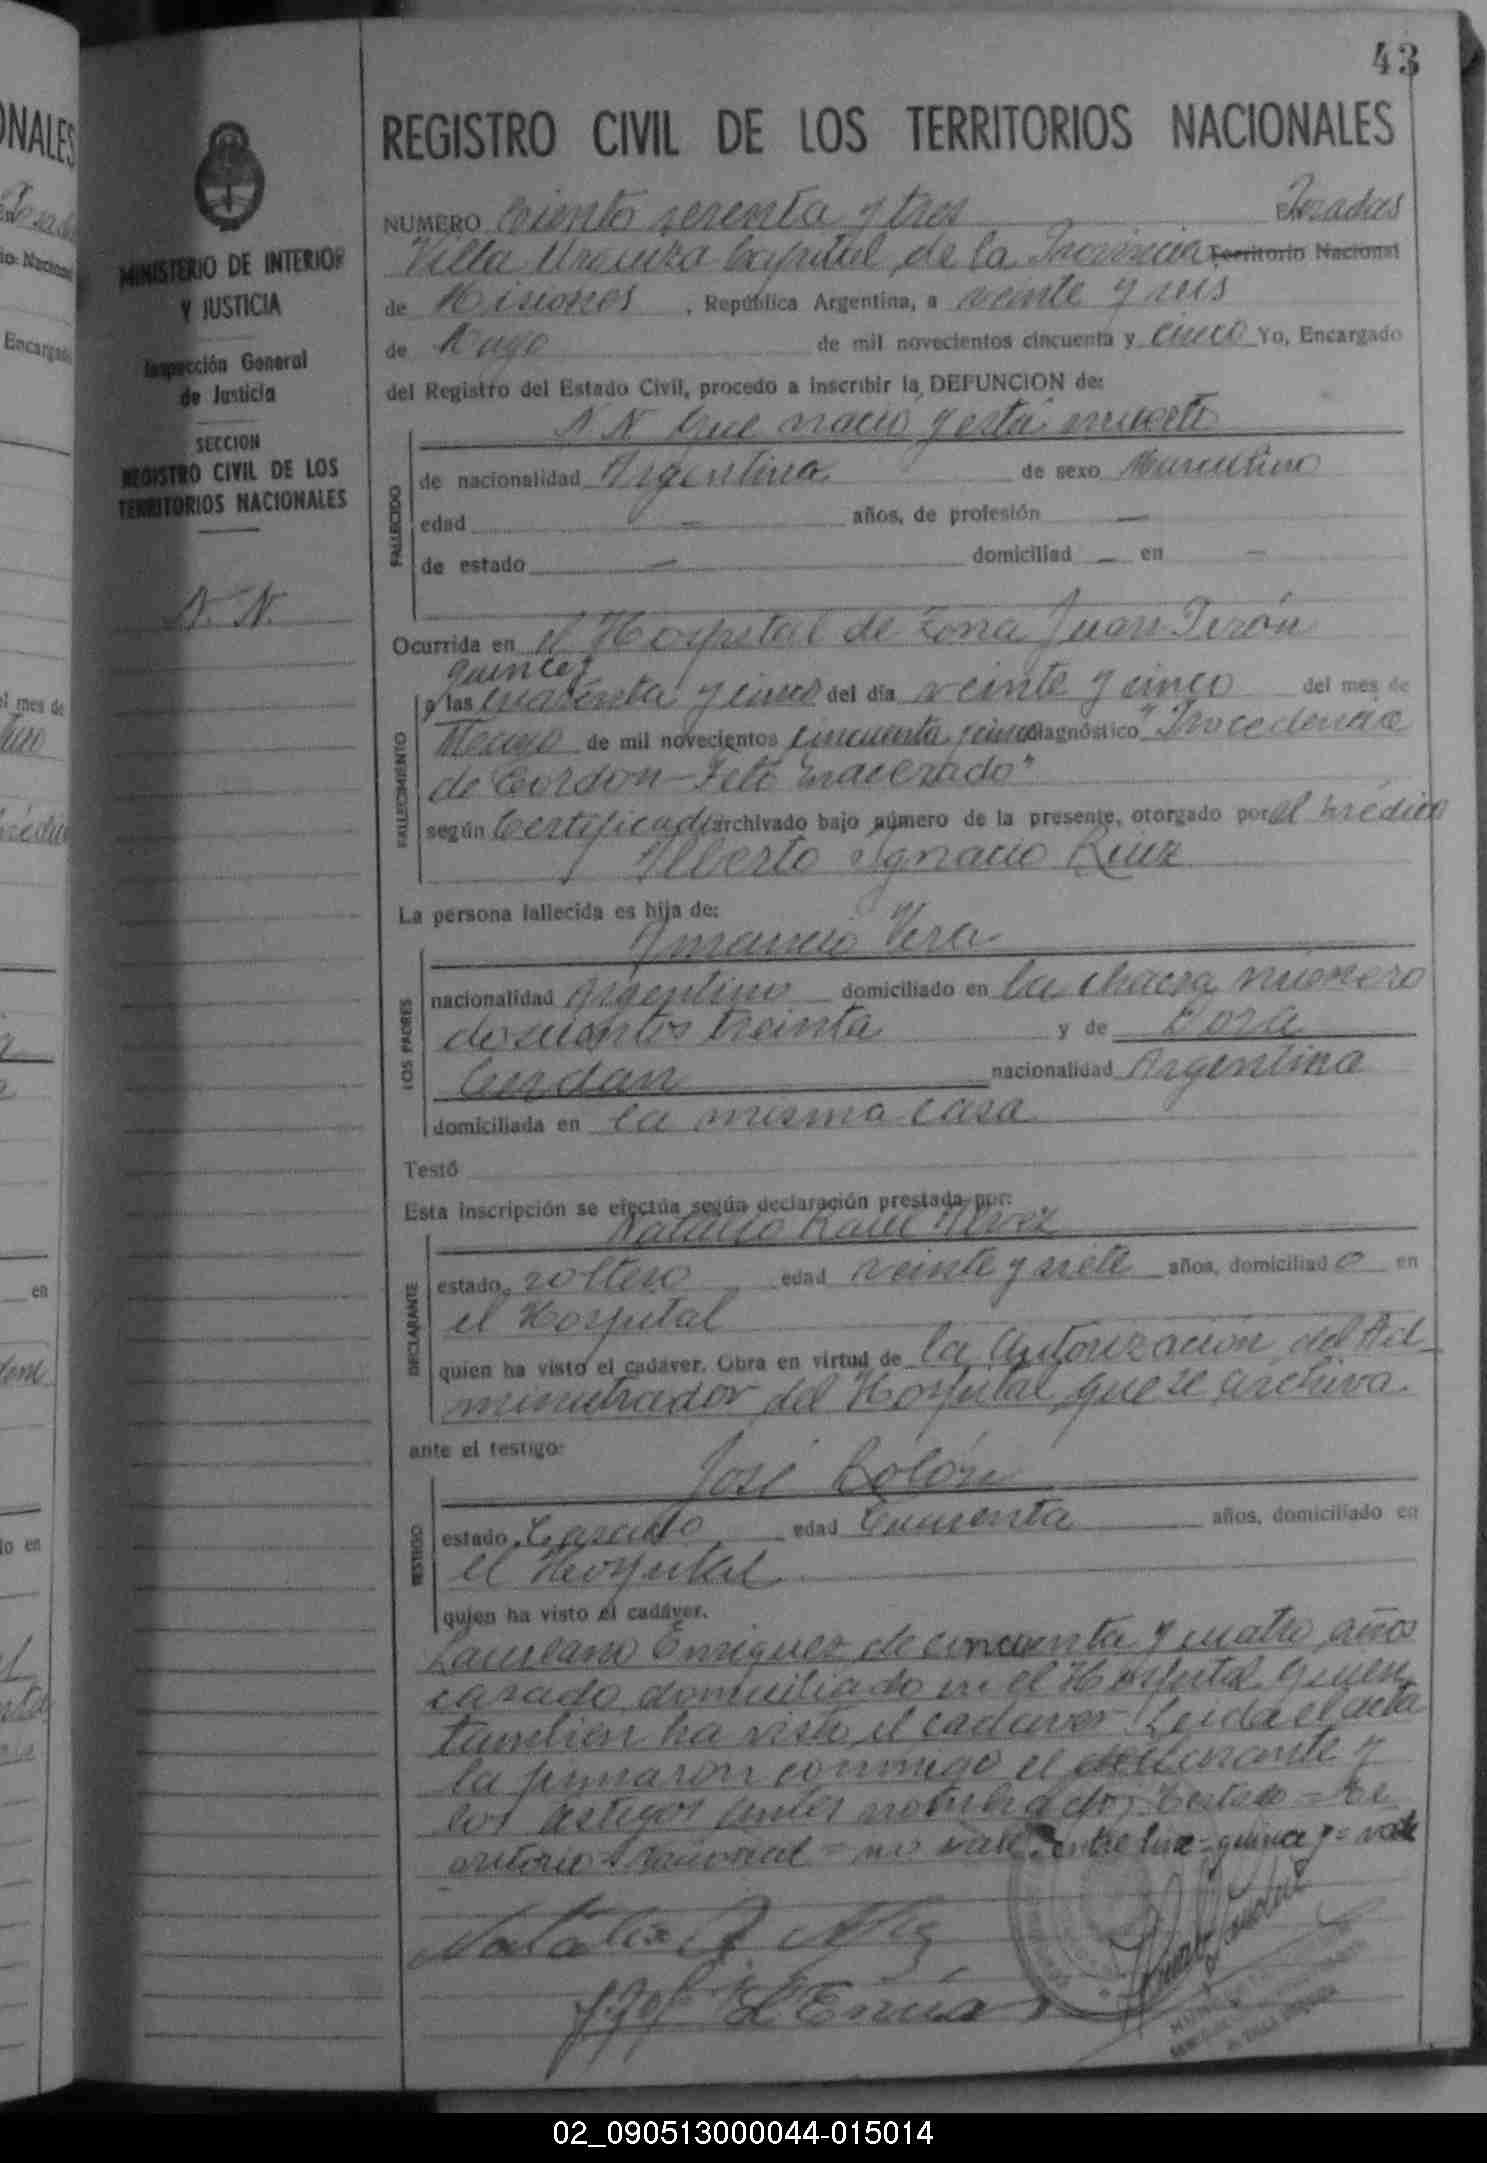 43
REGISTRO CIVIL DE LOS TERRITORIOS NACIONALES
MINISTERIO DE INTERIOR
Y JUSTICIA
Inspección General
de Justicia
SECCION
REGISTRO CIVIL DE LOS
TERRITORIOS NACIONALES
N. N.
NUMERO Ciento sesenta y tres Posadas
Villa Urquiza Capital de la Provincia Territorio Nacional
de Misiones , República Argentina, a veinte y seis
de Mayo de mil novecientos cincuenta y cinco Yo, Encargado
del Registro del Estado Civil, procedo a inscribir la DEFUNCION de:
N N que nació y está muerto
FALLECIDO
de nacionalidad Argentina de sexo Masculino
edad — años, de profesión —
de estado — domiciliad — en —
Ocurrida en el Hospital de Zona Juan Perón
quince y
FALLECIMIENTO
a las cuarenta y cinco del día veinte y cinco del mes de
Mayo de mil novecientos cincuenta y cinco diagnóstico "Procedencia
de Cordon - Feto macerado"
según Certificado archivado bajo número de la presente, otorgado por el médico
Alberto Ignacio Ruiz
La persona fallecida es hija de:
Amancio Vera
LOS PADRES
nacionalidad Argentino domiciliado en la chacra número
doscientos treinta y de Dora
Cerdan nacionalidad Argentina
domiciliada en la misma casa
Testó
Esta inscripción se efectúa según declaración prestada por:
Natalio Raul
DECLARANTE
estado, soltero edad veinte y siete años, domiciliad o en
el Hospital
quien ha visto el cadáver. Obra en virtud de la autorización del Ad-
ministrador del Hospital que se archiva.
ante el testigo:
José Colón
TESTIGO
estado, Casado edad Cuarenta años, domiciliado en
el Hospital
quien ha visto el cadáver.
Laureano Enriquez de cincuenta y cuatro años
casado domiciliado en el Hospital quien
tambien ha visto el cadaver. Leida el acta
la firmaron conmigo el declarante y
los testigos antes nombrados. Testado = Te
rritorio Nacional = no vale. entre linea = quince y = vale
02_090513000044-015014